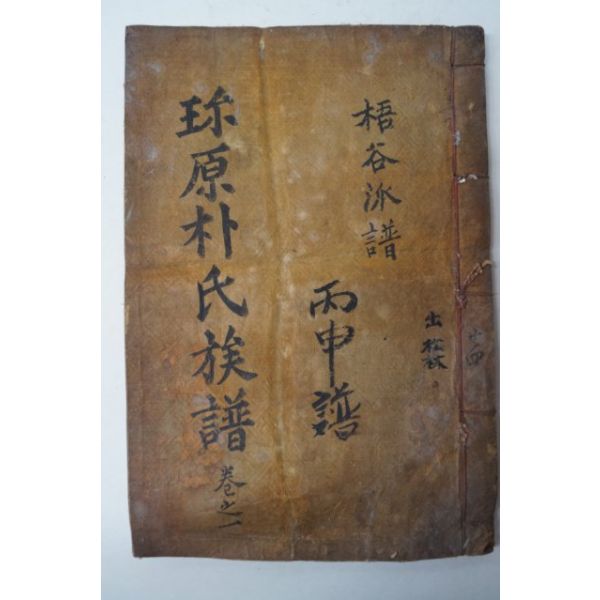 梧谷派譜
丙申譜
珎原朴氏族譜 卷之一